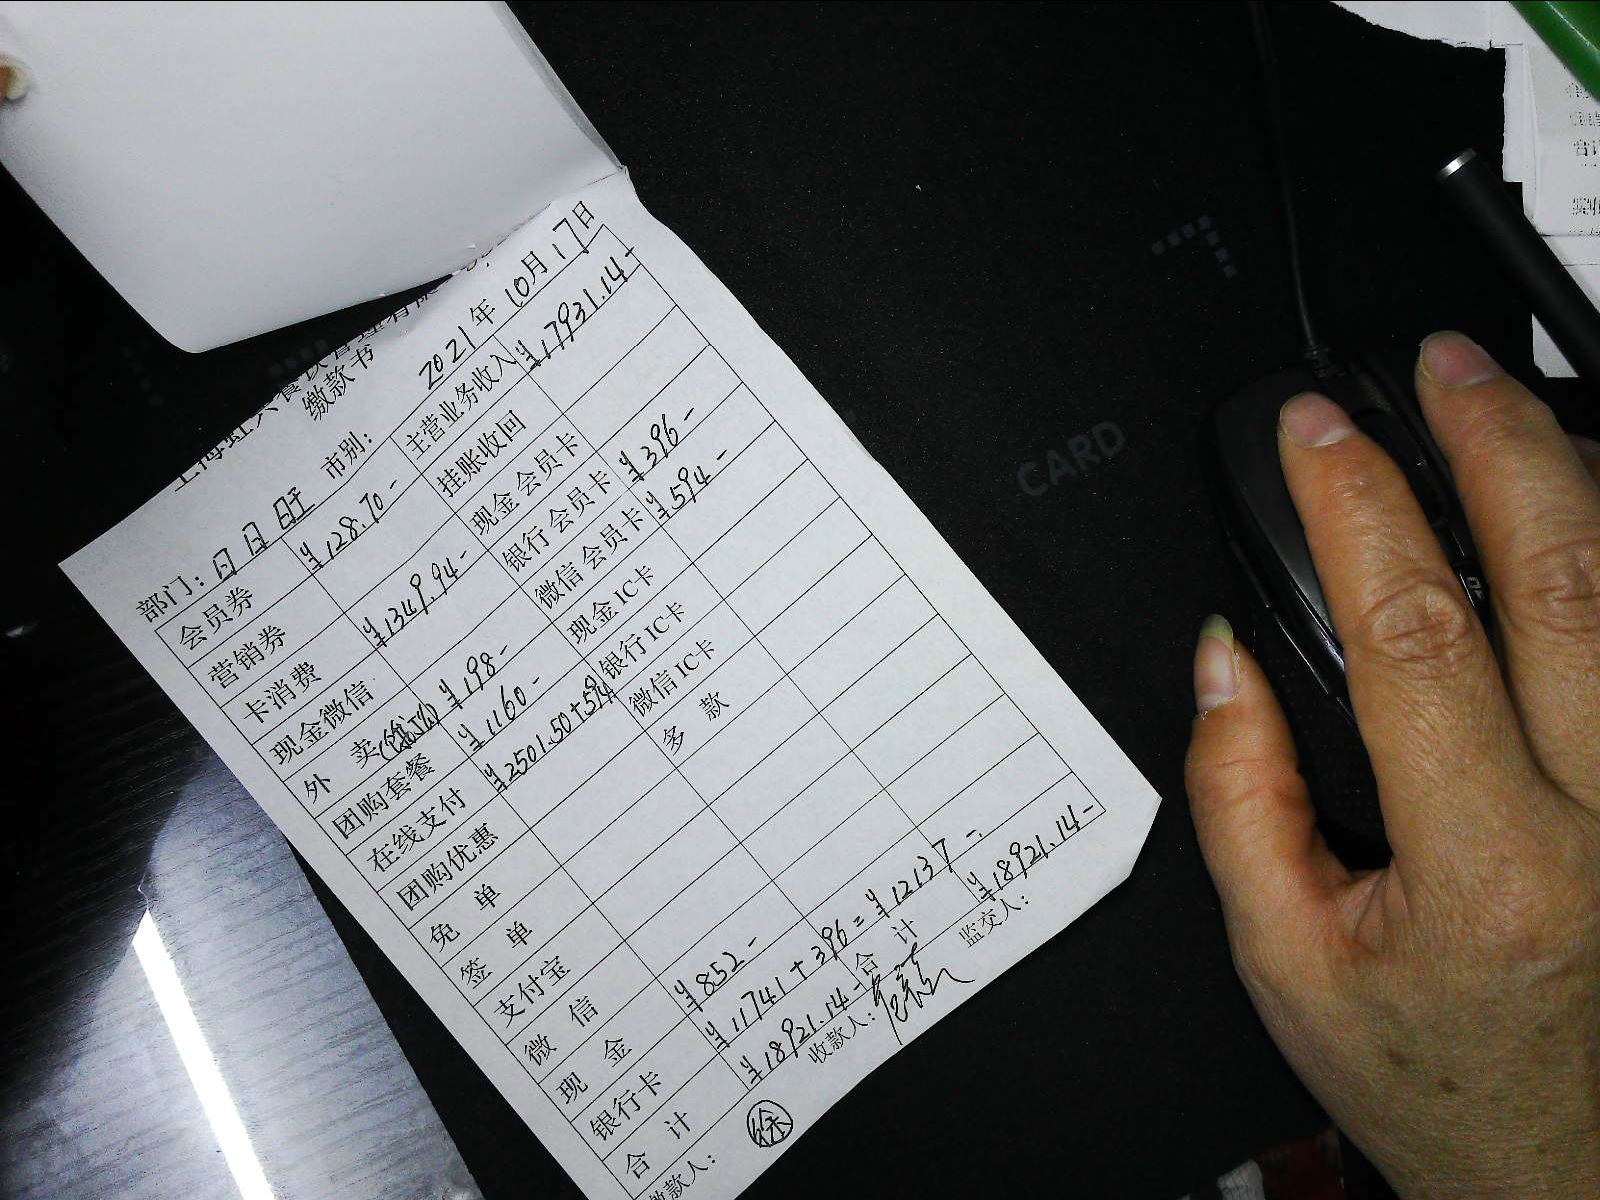 缴款书
2021年10月17日
部门:日日旺 市别:
会员券 ¥128.70- 主营业务收入 ¥17931.14-
营销券 挂账收回
卡消费 ¥1349.94- 现金会员卡
现金微信 银行会员卡 ¥396-
外 卖 ¥198- 微信会员卡 ¥594-
团购套餐 ¥1160- 现金IC卡
在线支付 ¥2501.50+594 银行IC卡
团购优惠 微信IC卡
免 单 多 款
签 单
支付宝
微 信
现 金 ¥852-
银行卡 ¥11741+396=¥12137-
合 计 ¥18921.14- 合 计 ¥18921.14-
缴款人: 徐 收款人: 监交人:
CARD